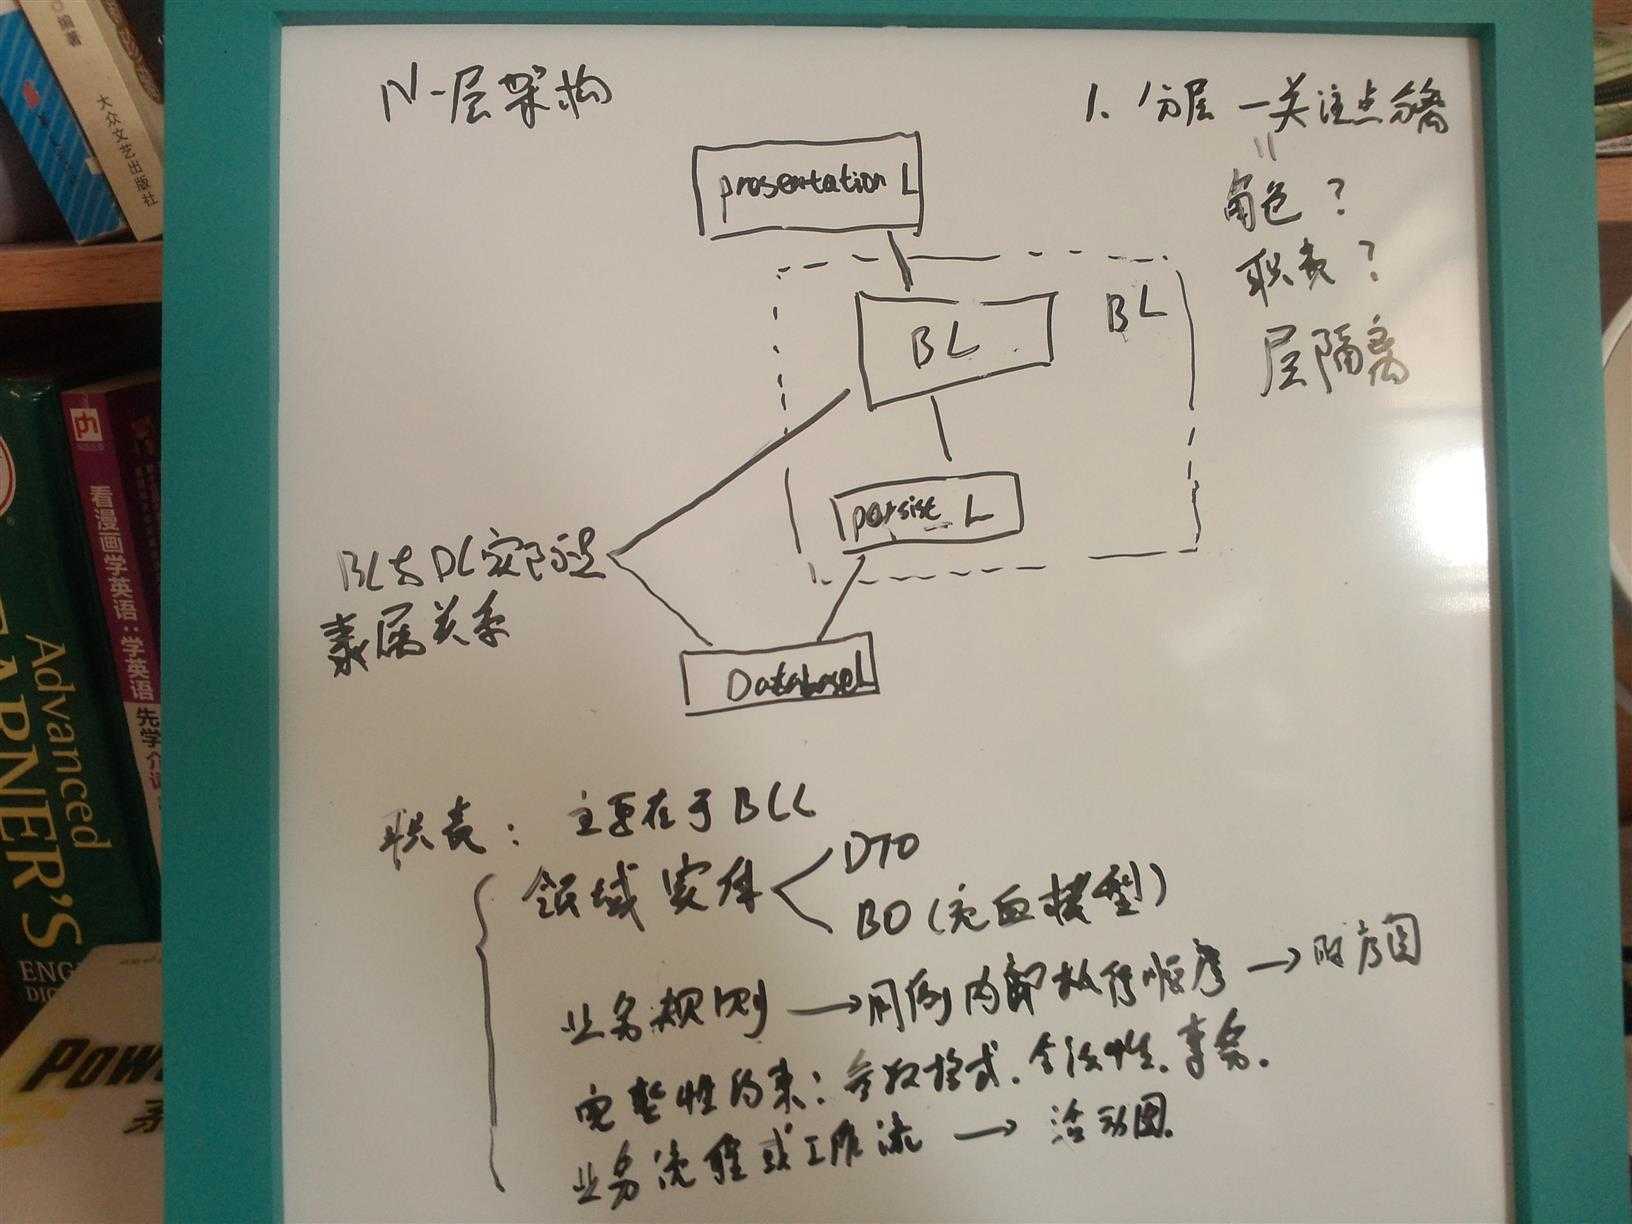 N-层架构
1. 分层 — 关注点分离
角色?
职责?
层隔离
presentation L
BL
BL
persist L
BL与DL实际是
隶属关系
Database L
职责: 主要在于BLL
领域实体
DTO
BO(充血模型)
业务规则 → 用例内部执行顺序 → 时序图
完整性约束: 参数格式. 合法性. 事务.
业务流程或工作流 → 活动图.
编著
大众文艺出版社
ph
看漫画学英语:学英语先学介词
Advanced
LEARNER'S
ENG
DIC
Powe